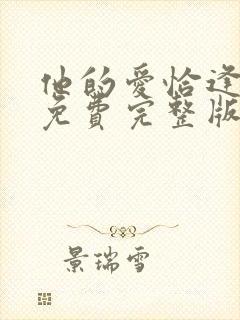 他的爱恰逢
免費完整版
景瑞雪